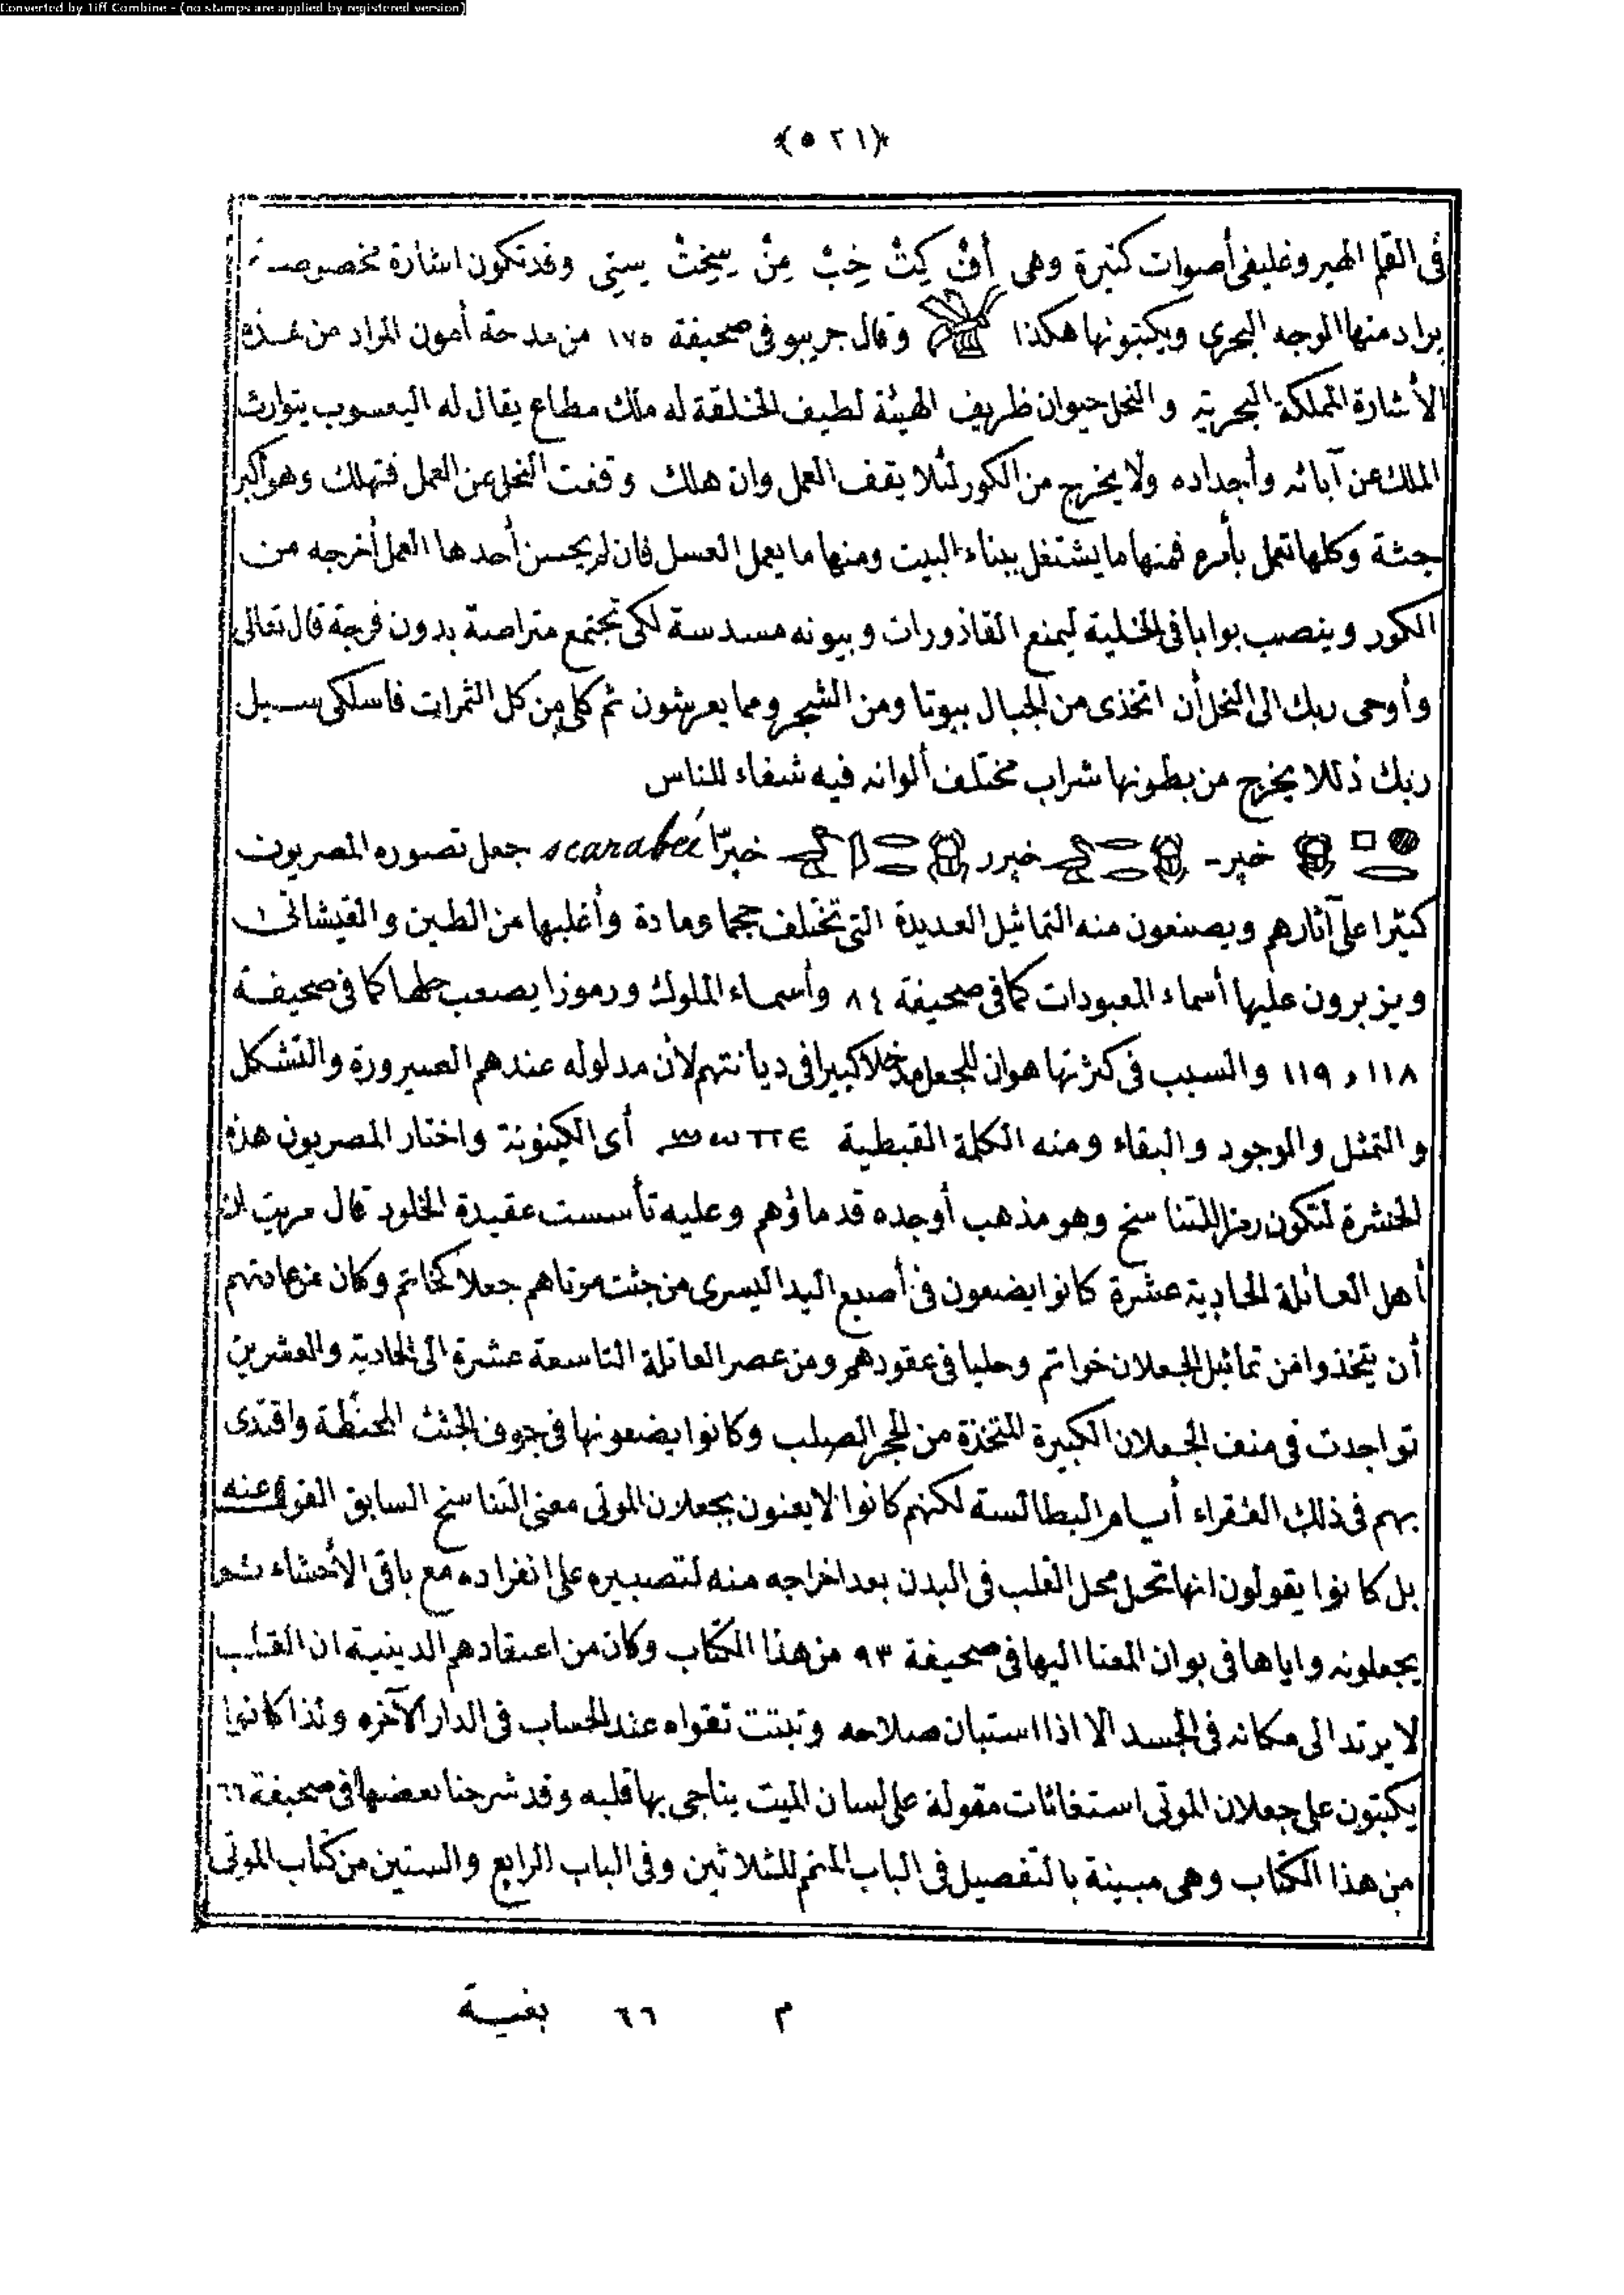 Converted by Tiff Combine - (no stamps are applied by registered version)
﴿٥٢١﴾
فى القلم الهيروغليفى أصوات كثيرة وهى أَفْ كِتْ خِبْ مِنْ سِخِتْ سِتِى وقد تكون اشارة مخصوصة
يراد منها الوجه البحرى ويكتبونها هكذا وقال جريبو فى صحيفة ١٧٥ من مدحة أمون المراد من هذه
الأشارة المملكة البحرية والنحل حيوان ظريف الهيئة لطيف الخلقة له ملك مطاع يقال له اليعسوب يتوارث
الملك عن آبائه وأجداده ولا يخرج من الكور لئلا يقف العمل وان هلك وقفت النحل عن العمل فتهلك وهو أكبر
جثة وكلها تعمل بأمره فمنها ما يشتغل ببناء البيت ومنها ما يعمل العسل فان لم يحسن أحدها العمل أخرجه من
الكور وينصب بوابا فى الخلية ليمنع القاذورات وبيوته مسدسة لكى تجتمع متراصة بدون فرجة قال تعالى
وأوحى ربك الى النحل أن اتخذى من الجبال بيوتا ومن الشجر ومما يعرشون ثم كلى من كل الثمرات فاسلكى سبيل
ربك ذللا يخرج من بطونها شراب مختلف ألوانه فيه شفاء للناس
خپر - خپرر خپرّا scarabée جعل تصوره المصريون
كثيرا على آثارهم ويصنعون منه التماثيل العديدة التى تختلف حجما ومادة وأغلبها من الطين والقيشانى
ويزبرون عليها أسماء المعبودات كما فى صحيفة ٨٤ وأسماء الملوك ورموزا يصعب حلها كما فى صحيفة
١١٨ و ١١٩ والسبب فى كثرتها هو ان للجعل مدخلا كبيرا فى ديانتهم لأن مدلوله عندهم الصيرورة والتشكل
والتمثل والوجود والبقاء ومنه الكلمة القبطية ϣωπε أى الكينونة واختار المصريون هذه
الحشرة لتكون رمزا للتناسخ وهو مذهب أوجده قدماؤهم وعليه تأسست عقيدة الخلود قال مريت ان
أهل العائلة الحادية عشرة كانوا يضعون فى أصبع اليد اليسرى من جثت موتاهم جعلا كخاتم وكان من عادتهم
أن يتخذوا من تماثيل الجعلان خواتم وحليا فى عقودهم ومن عصر العائلة التاسعة عشرة الى الحادية والعشرين
تواجدت فى منف الجعلان الكبيرة المتخذة من الحجر الصلب وكانوا يضعونها فى جوف الجثث المحنطة واقتدى
بهم فى ذلك الفقراء أيام البطالسة لكنهم كانوا لا يعنون بجعلان الموتى معنى التناسخ السابق القول عنه
بل كانوا يقولون انها تحل محل القلب فى البدن بعد اخراجه منه لتصبيره على انفراده مع باقى الأحشاء ثم
يجعلونه واياها فى بوان المعنا اليها فى صحيفة ٩٣ من هذا الكتاب وكان من اعتقادهم الدينية ان القلب
لا يرتد الى مكانه فى الجسد الا اذا استبان صلاحه وثبتت تقواه عند الحساب فى الدار الآخره ولذا كانوا
يكتبون على جعلان الموتى استغاثات مقولة على لسان الميت يناجى بها قلبه وقد شرحنا بعضها فى صحيفة ٦٦
من هذا الكتاب وهى مبينة بالتفصيل فى الباب المتمم للثلاثين وفى الباب الرابع والستين من كتاب الموتى
م ٦٦ بغية